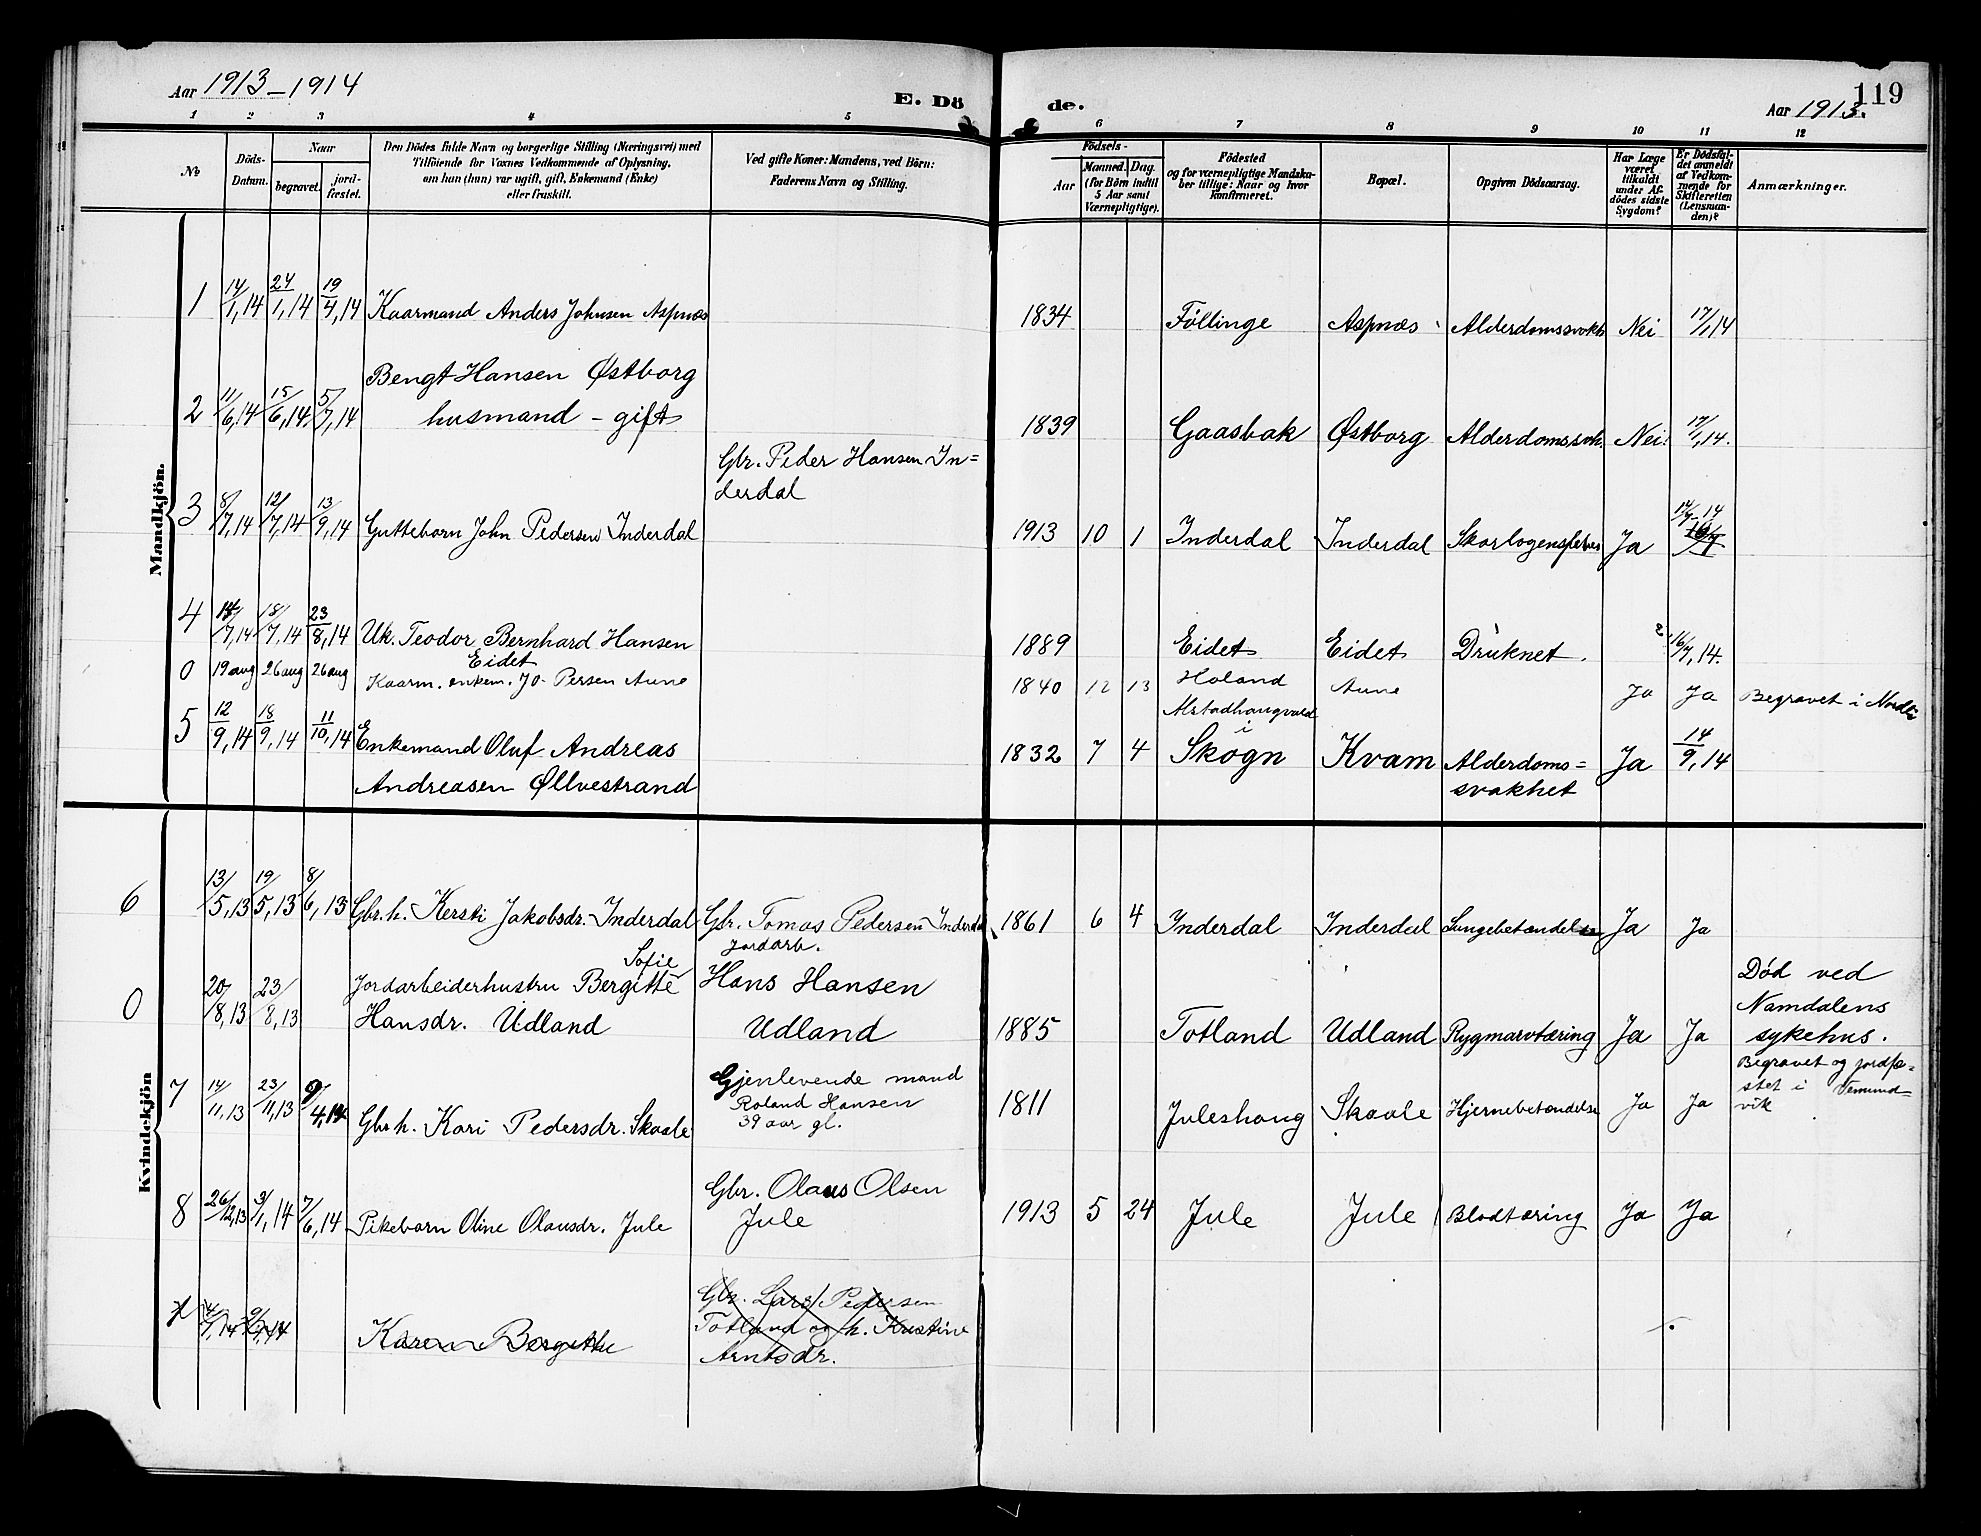 Aar 1913-1914
E. Dö
de.
119
Aar 1913.
1 2 3 4 5 6 7 8 9 10 11 12
No
Döds-
Datum.
Naar
begravet.
jord-
fæstet.
Den Dödes fulde Navn og borgerlige Stilling (Næringsvei) med
Tilföiende for Voxnes Vedkommende af Oplysning,
om hun (hun) var ugift, gift, Enkemand (Enke)
eller fraskilt.
Ved gifte Koner: Mandens, ved Börn:
Faderens Navn og Stilling.
Födsels-
Aar
Maaned. Dag.
(for Börn indtil
5 Aar samt
Værnepligtige).
Födested
og for værnepligtige Mandska-
ber tillige: Naar og hvor
konfirmeret.
Bopæl.
Opgiven Dödsaarsag.
Har Læge
været
tilkaldt
under Af-
dödes sidste
Sygdom?
Er Dödsfal-
det anmeldt
af Vedkom-
mende for
Skifteretten
(Lensman-
den)?
Anmærkninger.
Mandkjön.
1 14/1,14 24/1,14 19/4,14 Kaarmand Anders Johnsen Aspnæs 1834 Föllinge Aspnæs Alderdomssvakh Nei 17/1 14
Bengt Hansen Østborg
2 11/6,14 15/6,14 5/7,14 husmand - gift 1839 Gaasbak Østborg Alderdomssvh. Nei. 17/1,14.
Gbr. Peder Hansen In=
derdal
3 8/7,14 12/7,14 13/9,14 Guttebarn John Pedersen Inderdal 1913 10 1 Inderdal Inderdal Ja 14
4 18/7,14 23/8,14 Uk. Teodor Bernhard Hansen 1889 Eidet Eidet Druknet. 16/7,14.
Eidet
0 19 aug 26 aug 26 aug Kaarm. enkem. Jo Persen Aune 1840 12 13 Holand Aune Ja Ja Begravet i Nordli
Alstadhaugvald
i
5 12/9,14 18/9,14 11/10,14 Enkemand Oluf Andreas 1832 7 4 Skogn Kvam Alderdoms= Ja 14/9,14
Andreasen Øllvestrand svakhet
Kvindekjön
6 13/5,13 19/5,13 8/6,13 Gbr.h. Kersti Jakobsdr. Inderdal Gbr. Tomas Pedersen Inderdal 1861 6 4 Inderdal Inderdal Lungebetændelse Ja Ja
Sofie Jordarb.
0 20/8,13 23/8,13 Jordarbeiderhustru Bergitte Hans Hansen
Hansdr. Udland Udland 1885 Totland Udland Rygmarvtæring Ja Ja
Död ved
Namdalens
sykehus.
Begravet og jordfæ-
stet i Vemund-
vik
7 14/11,13 23/11,13 9/4,14 Gbr h. Kari Pedersdr. Skaale Gjenlevende mand
Roland Hansen
39 aar gl.
1811 Juleshaug Skaale Hjernebetændelse Ja Ja
8 26/12,13 3/1,14 7/6,14 Pikebarn Oline Olausdr. Jule Gbr. Olaus Olsen
Jule
1913 5 24 Jule Jule Blodtæring Ja Ja
Karen Bergitte
Gbr. Lars Pedersen
Totland og h. Kristine
Arntsdr.